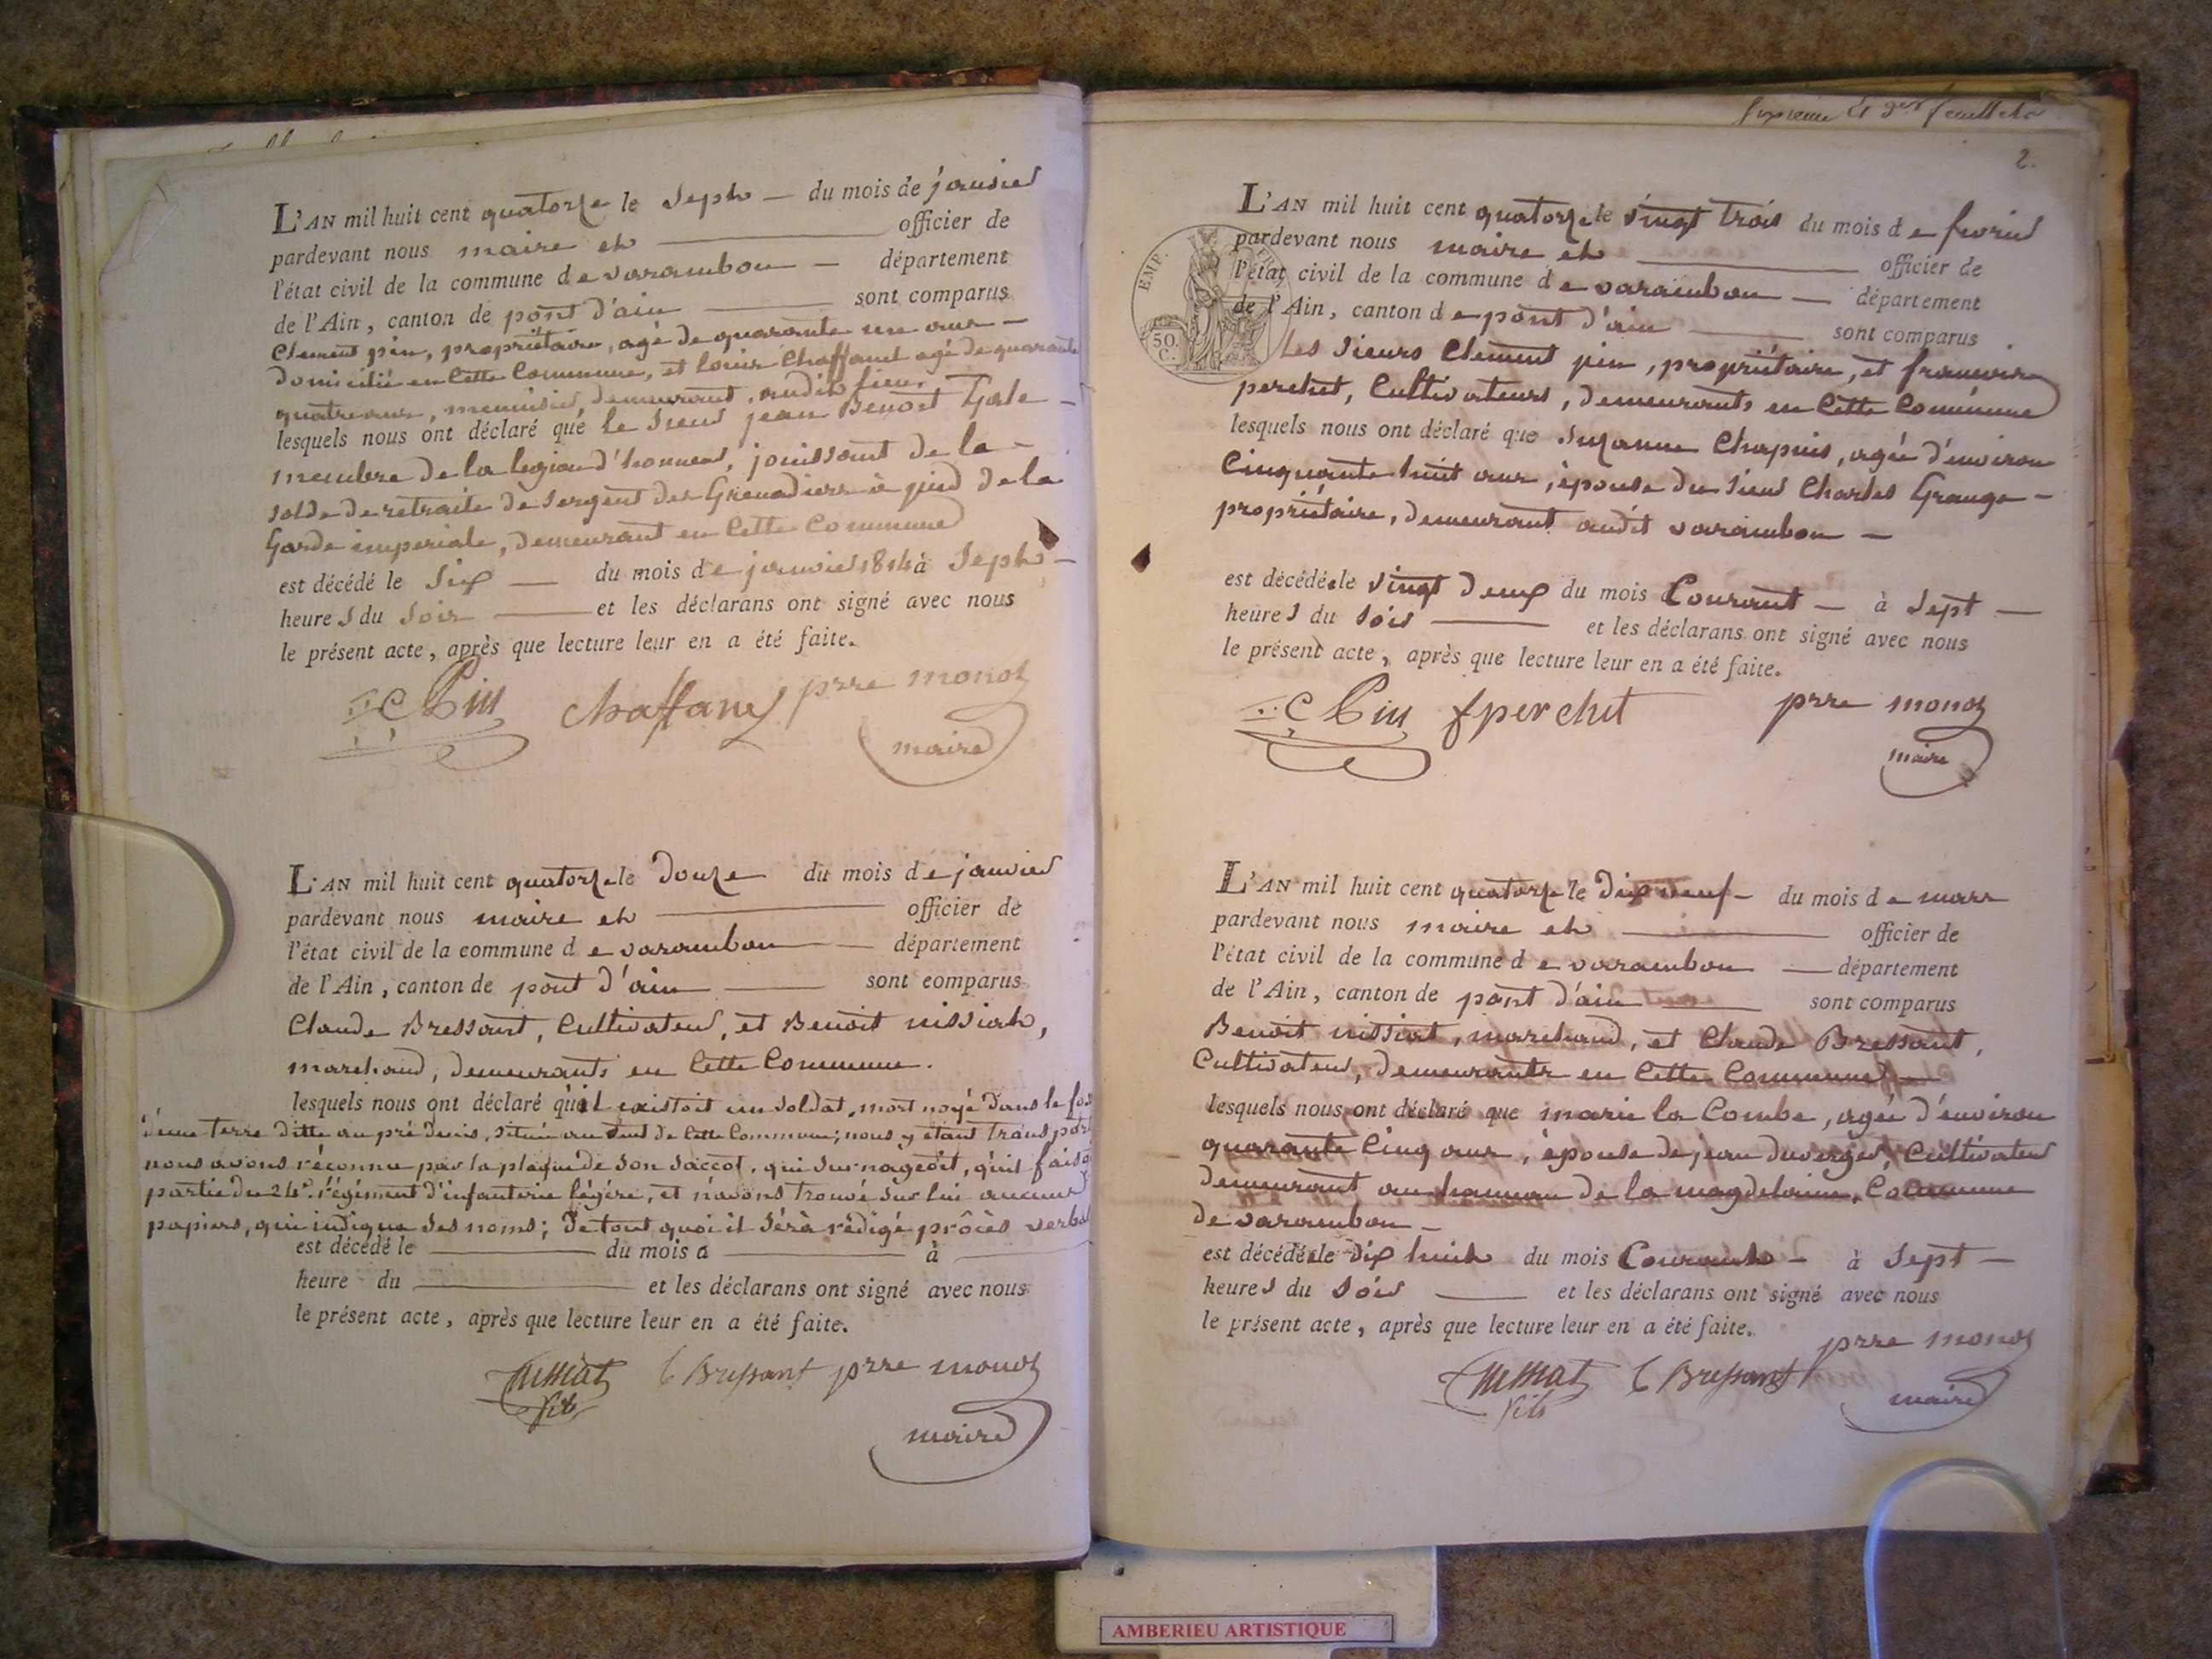 L'AN mil huit cent quatorze le Sept — du mois de janvier
pardevant nous maire et officier de
l'état civil de la commune de varambon — département
de l'Ain, canton de pont d'ain sont comparus
Clement pin, propriétaire, agé de quarante un ans —
domicilié en Cette Commune, et louis Chaffanel agé de quarante
quatre ans, menuisier, demeurant audit lieu.
lesquels nous ont déclaré que le Sieur jean Benoît Gale —
membre de la legion d'honneur, jouissant de la —
solde de retraite de Sergent des Grenadiers à pied de la
Garde imperiale, demeurant en Cette Commune
est décédé le Six — du mois de janvier 1814 à Sept —
heures du Soir et les déclarans ont signé avec nous
le présent acte, après que lecture leur en a été faite.
C Pin prre monoz
maire
L'AN mil huit cent quatorze le Douze du mois de janvier
pardevant nous maire et officier de
l'état civil de la commune de varambon — département
de l'Ain, canton de pont d'ain sont comparus
Claude Bressant, Cultivateur, et Benoit nissiat,
marchand, demeurants en Cette Commune.
lesquels nous ont déclaré qu'il existoit un soldat, mort noyé dans le fos
d'une terre ditte au pré Située au de Cette Commune; nous y étant transport
nous avons réconnu par la plaque de son saccot, qui surnageoit, qu'il faiso
partie du 24e. régiment d'infanterie légère, et n'avons trouvé sur lui aucuns
papiers, qui indiqua ses noms; De tout quoi il séra rédigé procès verbal
est décédé le du mois d à
heure du et les déclarans ont signé avec nous
le présent acte, après que lecture leur en a été faite.
Nissiat C Bressant prre monoz
fils
maire
feuillet
2.
EMP.
50.
C.
L'AN mil huit cent quatorze le vingt trois du mois de fevrier
pardevant nous maire et officier de
l'état civil de la commune de varambon — département
de l'Ain, canton de pont d'ain sont comparus
Les Sieurs Clement pin, propriétaire, et francois
perchet, Cultivateurs, demeurants en Cette Commune
lesquels nous ont déclaré que Suzanne Chapuis, agée d'environ
Cinquante huit ans, épouse du Sieur Charles Grange —
propriétaire, demeurant audit varambon —
est décédée le vingt deux du mois Courant — à Sept —
heures du Soir et les déclarans ont signé avec nous
le présent acte, après que lecture leur en a été faite.
C Pin f perchet prre monoz
maire
L'AN mil huit cent quatorze le Dix neuf — du mois de mars
pardevant nous maire et officier de
l'état civil de la commune de varambon — département
de l'Ain, canton de pont d'ain sont comparus
Benoit nissiat, marchand, et Claude Bressant,
Cultivateur, demeurants en Cette Commune —
lesquels nous ont déclaré que marie la Combe, agée d'environ
quarante Cinq ans, épouse de jean duverger, Cultivateur
demeurant au hameau de la magdelaine, Commune
de varambon —
est décédée le Dix huit du mois Courant — à Sept —
heures du Soir et les déclarans ont signé avec nous
le présent acte, après que lecture leur en a été faite.
Nissiat C Bressant prre monoz
fils
maire
AMBERIEU ARTISTIQUE